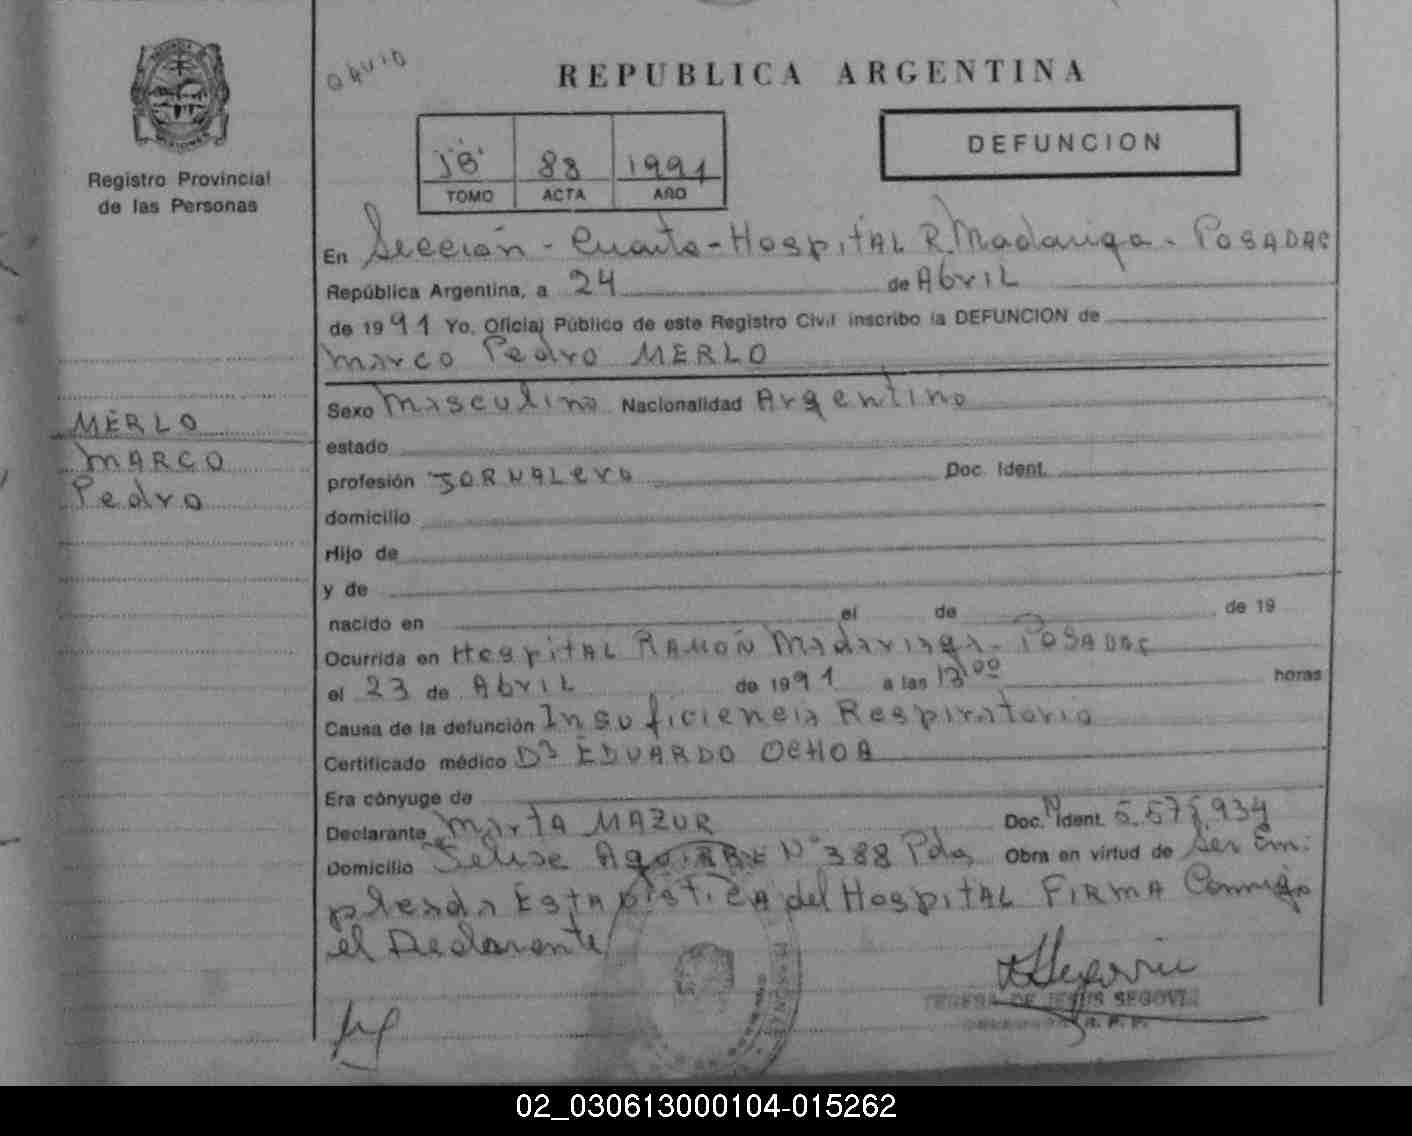 REPUBLICA ARGENTINA
DEFUNCION
88 1991
TOMO ACTA AÑO
Registro Provincial
de las Personas
En Sección - Cuarta - Hospital R. Madariaga - POSADAS
República Argentina, a 24 de Abril
de 1991 Yo, Oficial Público de este Registro Civil inscribo la DEFUNCION de
Marco Pedro MERLO
Sexo Masculino Nacionalidad Argentino
MERLO
MARCO
Pedro
estado
profesión JORNALero Doc. Ident.
domicilio
Hijo de
y de
nacido en el de de 19
Ocurrida en Hospital RAMON Madariaga - POSADAS
el 23 de Abril de 1991 a las horas
Causa de la defunción Insuficiencia Respiratoria
Certificado médico Dr EDUARDO OCHOA
Era cónyuge de
Declarante Marta MAZUR Doc. Ident.
Domicilio AGUIRRE Nº 388 Pdas Obra en virtud de ser Em-
pleada EstADistiCA del HospitAL FIRMA Conmigo
el Declarante
TERESA DE JESUS SEGOVIA
02_030613000104-015262